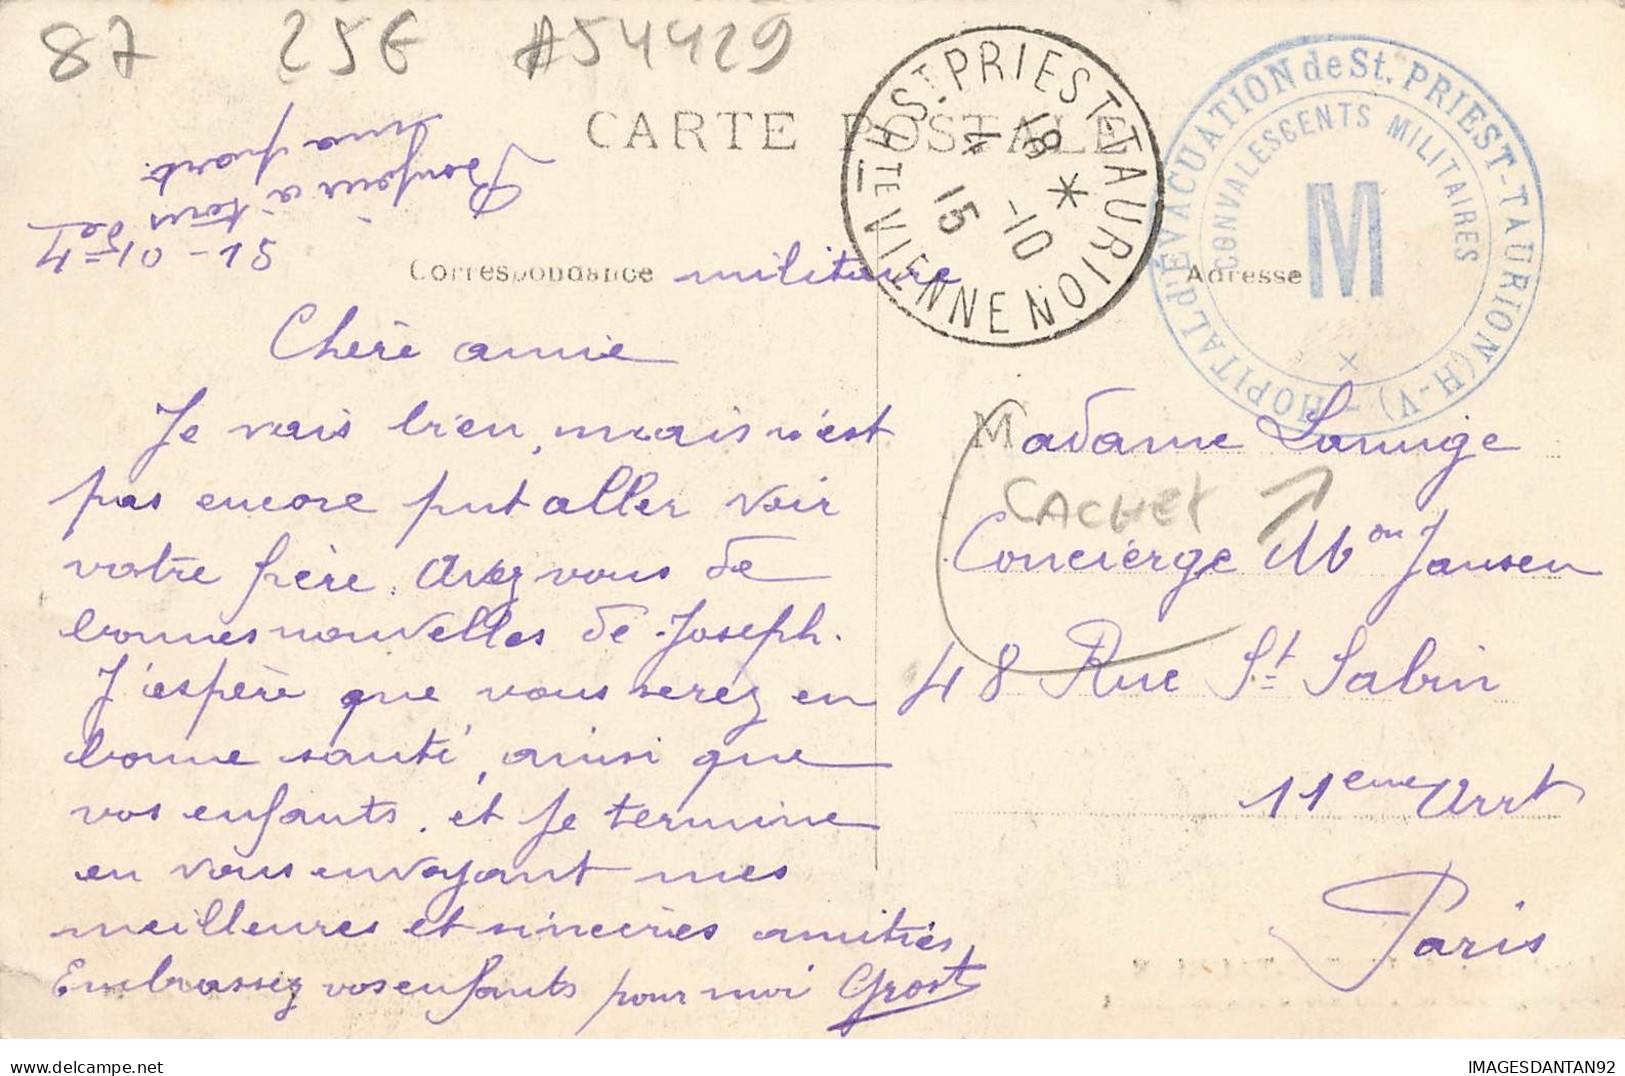 87 25E A54429
CARTE POSTALE
ST PRIEST-TAURION
HTE VIENNE
18 *
4 -10
15
HOPITAL d'ÉVACUATION de St. PRIEST-TAURION (H-V)
CONVALESCENTS MILITAIRES
M
4-10-15
Bonjour à tous de
ma part.
Correspondance militaire
Adresse
Chère amie
Je vais bien, mais n'est
pas encore put aller voir
votre frère. Avez vous de
bonnes nouvelles de Joseph.
J'espère que vous serez en
bonne santé, ainsi que
vos enfants. et je termine
en vous envoyant mes
meilleures et sincères amitiés,
Embrassez vos enfants pour moi Grost
Madame
CACHET
Concièrge Mon Jansen
48 Rue St Sabin
11eme Arrt
Paris
IMAGESDANTAN92